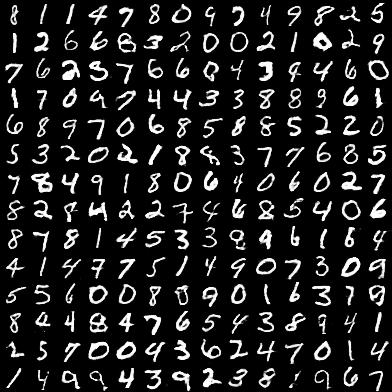 8 1 1 4 7 8 0 9 3 4 9 8 2 5
1 2 6 6 8 3 2 0 0 2 1 0 2 9
7 6 2 3 7 6 6 0 4 3 4 4 6 0
1 7 0 9 7 4 4 3 3 8 8 9 6 1
6 8 9 7 0 6 8 5 8 8 5 2 2 0
5 3 2 0 2 1 8 8 3 7 7 6 8 5
7 8 4 9 1 8 0 6 4 0 6 0 2 7
8 2 8 4 2 2 7 4 6 8 5 4 0 6
8 7 8 1 4 5 3 3 9 6 1 6 4
4 1 4 7 7 5 1 4 9 0 7 3 0 9
5 5 6 0 0 8 8 9 0 1 6 3 7
8 4 4 8 4 7 6 5 4 3 8 9 4 1
2 5 7 0 0 4 3 6 2 4 7 0 1 4
1 4 9 9 4 3 9 2 3 8 1 9 6 7